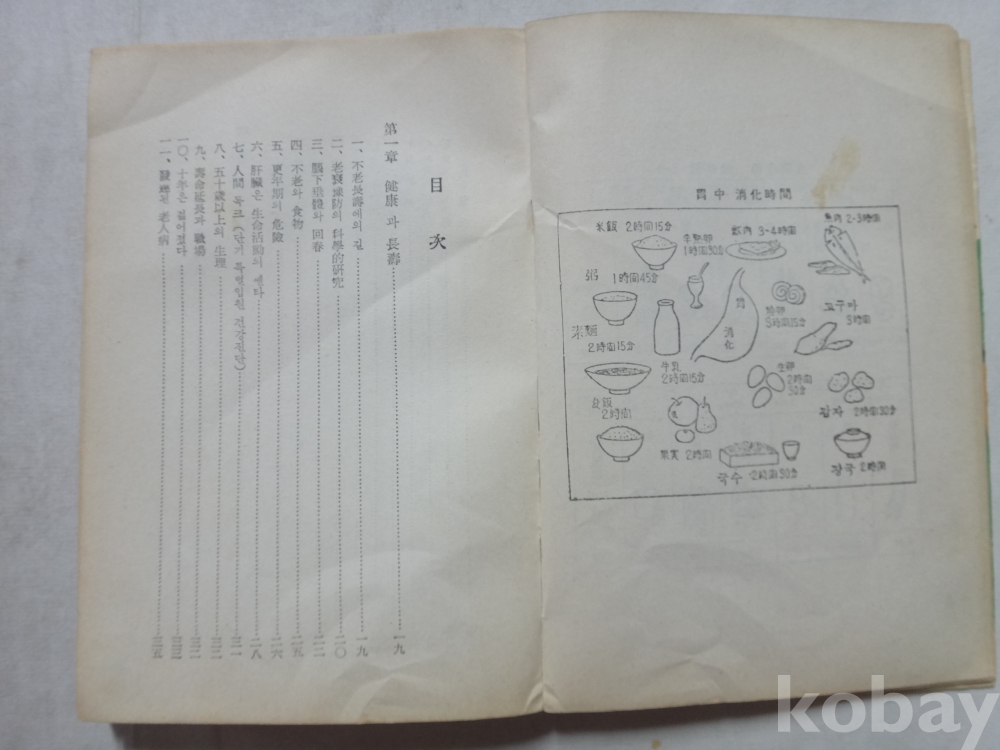 目次
第一章 健康과 長壽 一九
一、不老長壽에의 길 一九
二、老衰豫防의 科學的硏究 二〇
三、腦下垂體와 回春 二二
四、不老와 食物 二五
五、更年期의 危險 二六
六、肝臟은 生命活動의 센타 二八
七、人間 독크 (단기 특별입원 건강진단) 三一
八、五十歲以上의 生理 三二
九、壽命延長과 職場 三二
一〇、十年은 젊어졌다 三三
一一、老人病 三五
胃中 消化時間
米飯 2時間15分
半熟卵 1時間30分
獸肉 3~4時間
魚肉 2-3時間
粥 1時間45分
胃 消化
3時間15分
고구마 3時間
2時間15分
牛乳 2時間15分
生卵 2時間30分
麦飯 2時間
감자 2時間30分
果実 2時間
국수 2時間30分
장국 2時間
kobay